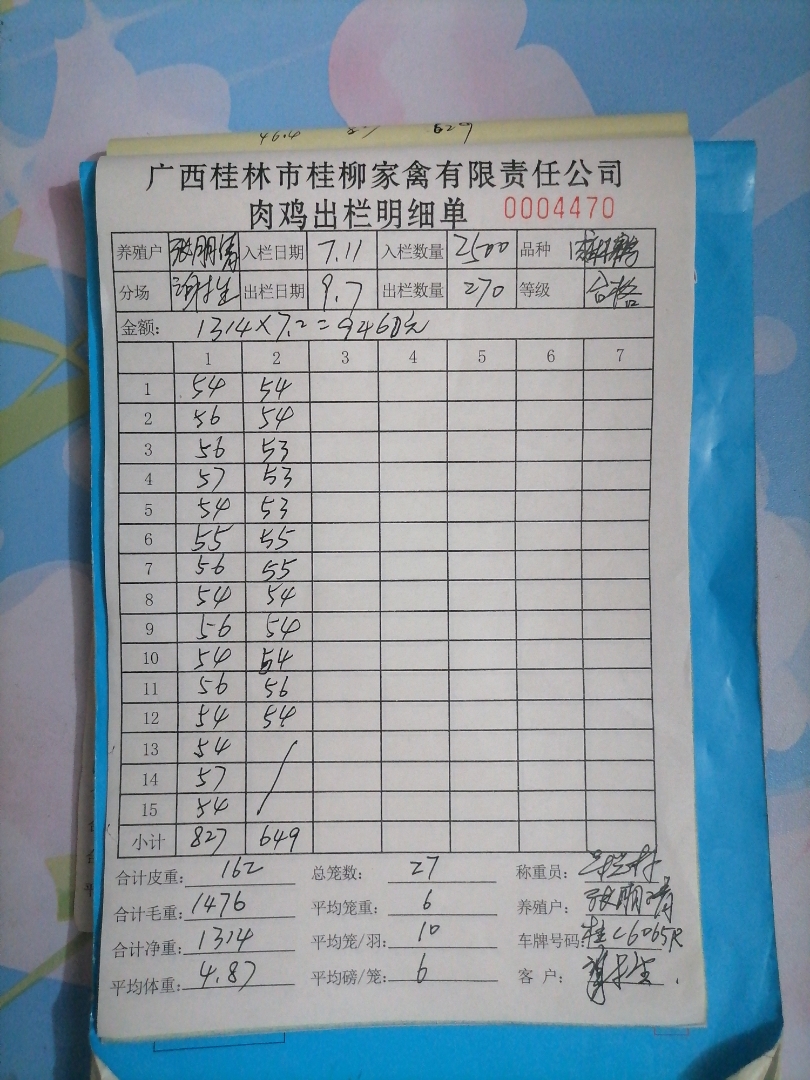 46.4 629
广西桂林市桂柳家禽有限责任公司
肉鸡出栏明细单 0004470
养殖户 张明清 入栏日期 7.11 入栏数量 2500 品种
分场 出栏日期 9.7 出栏数量 270 等级 合格
金额: 1314×7.2=9460元
1 2 3 4 5 6 7
1 54 54
2 56 54
3 56 53
4 57 53
5 54 53
6 55 55
7 56 55
8 54 54
9 56 54
10 54 54
11 56 56
12 54 54
13 54
14 57
15 54
小计 827 649
合计皮重: 162 总笼数: 27 称重员:
合计毛重: 1476 平均笼重: 6 养殖户: 张明清
合计净重: 1314 平均笼/羽: 10 车牌号码: 桂C6065R
平均体重: 4.87 平均磅/笼: 6 客户: